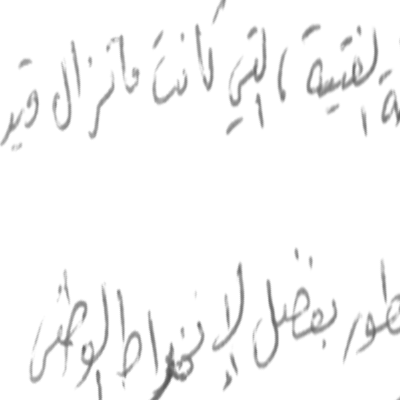 الفتية ، التي كانت ماتزال قيد
بفضل الإنخراط الوطني